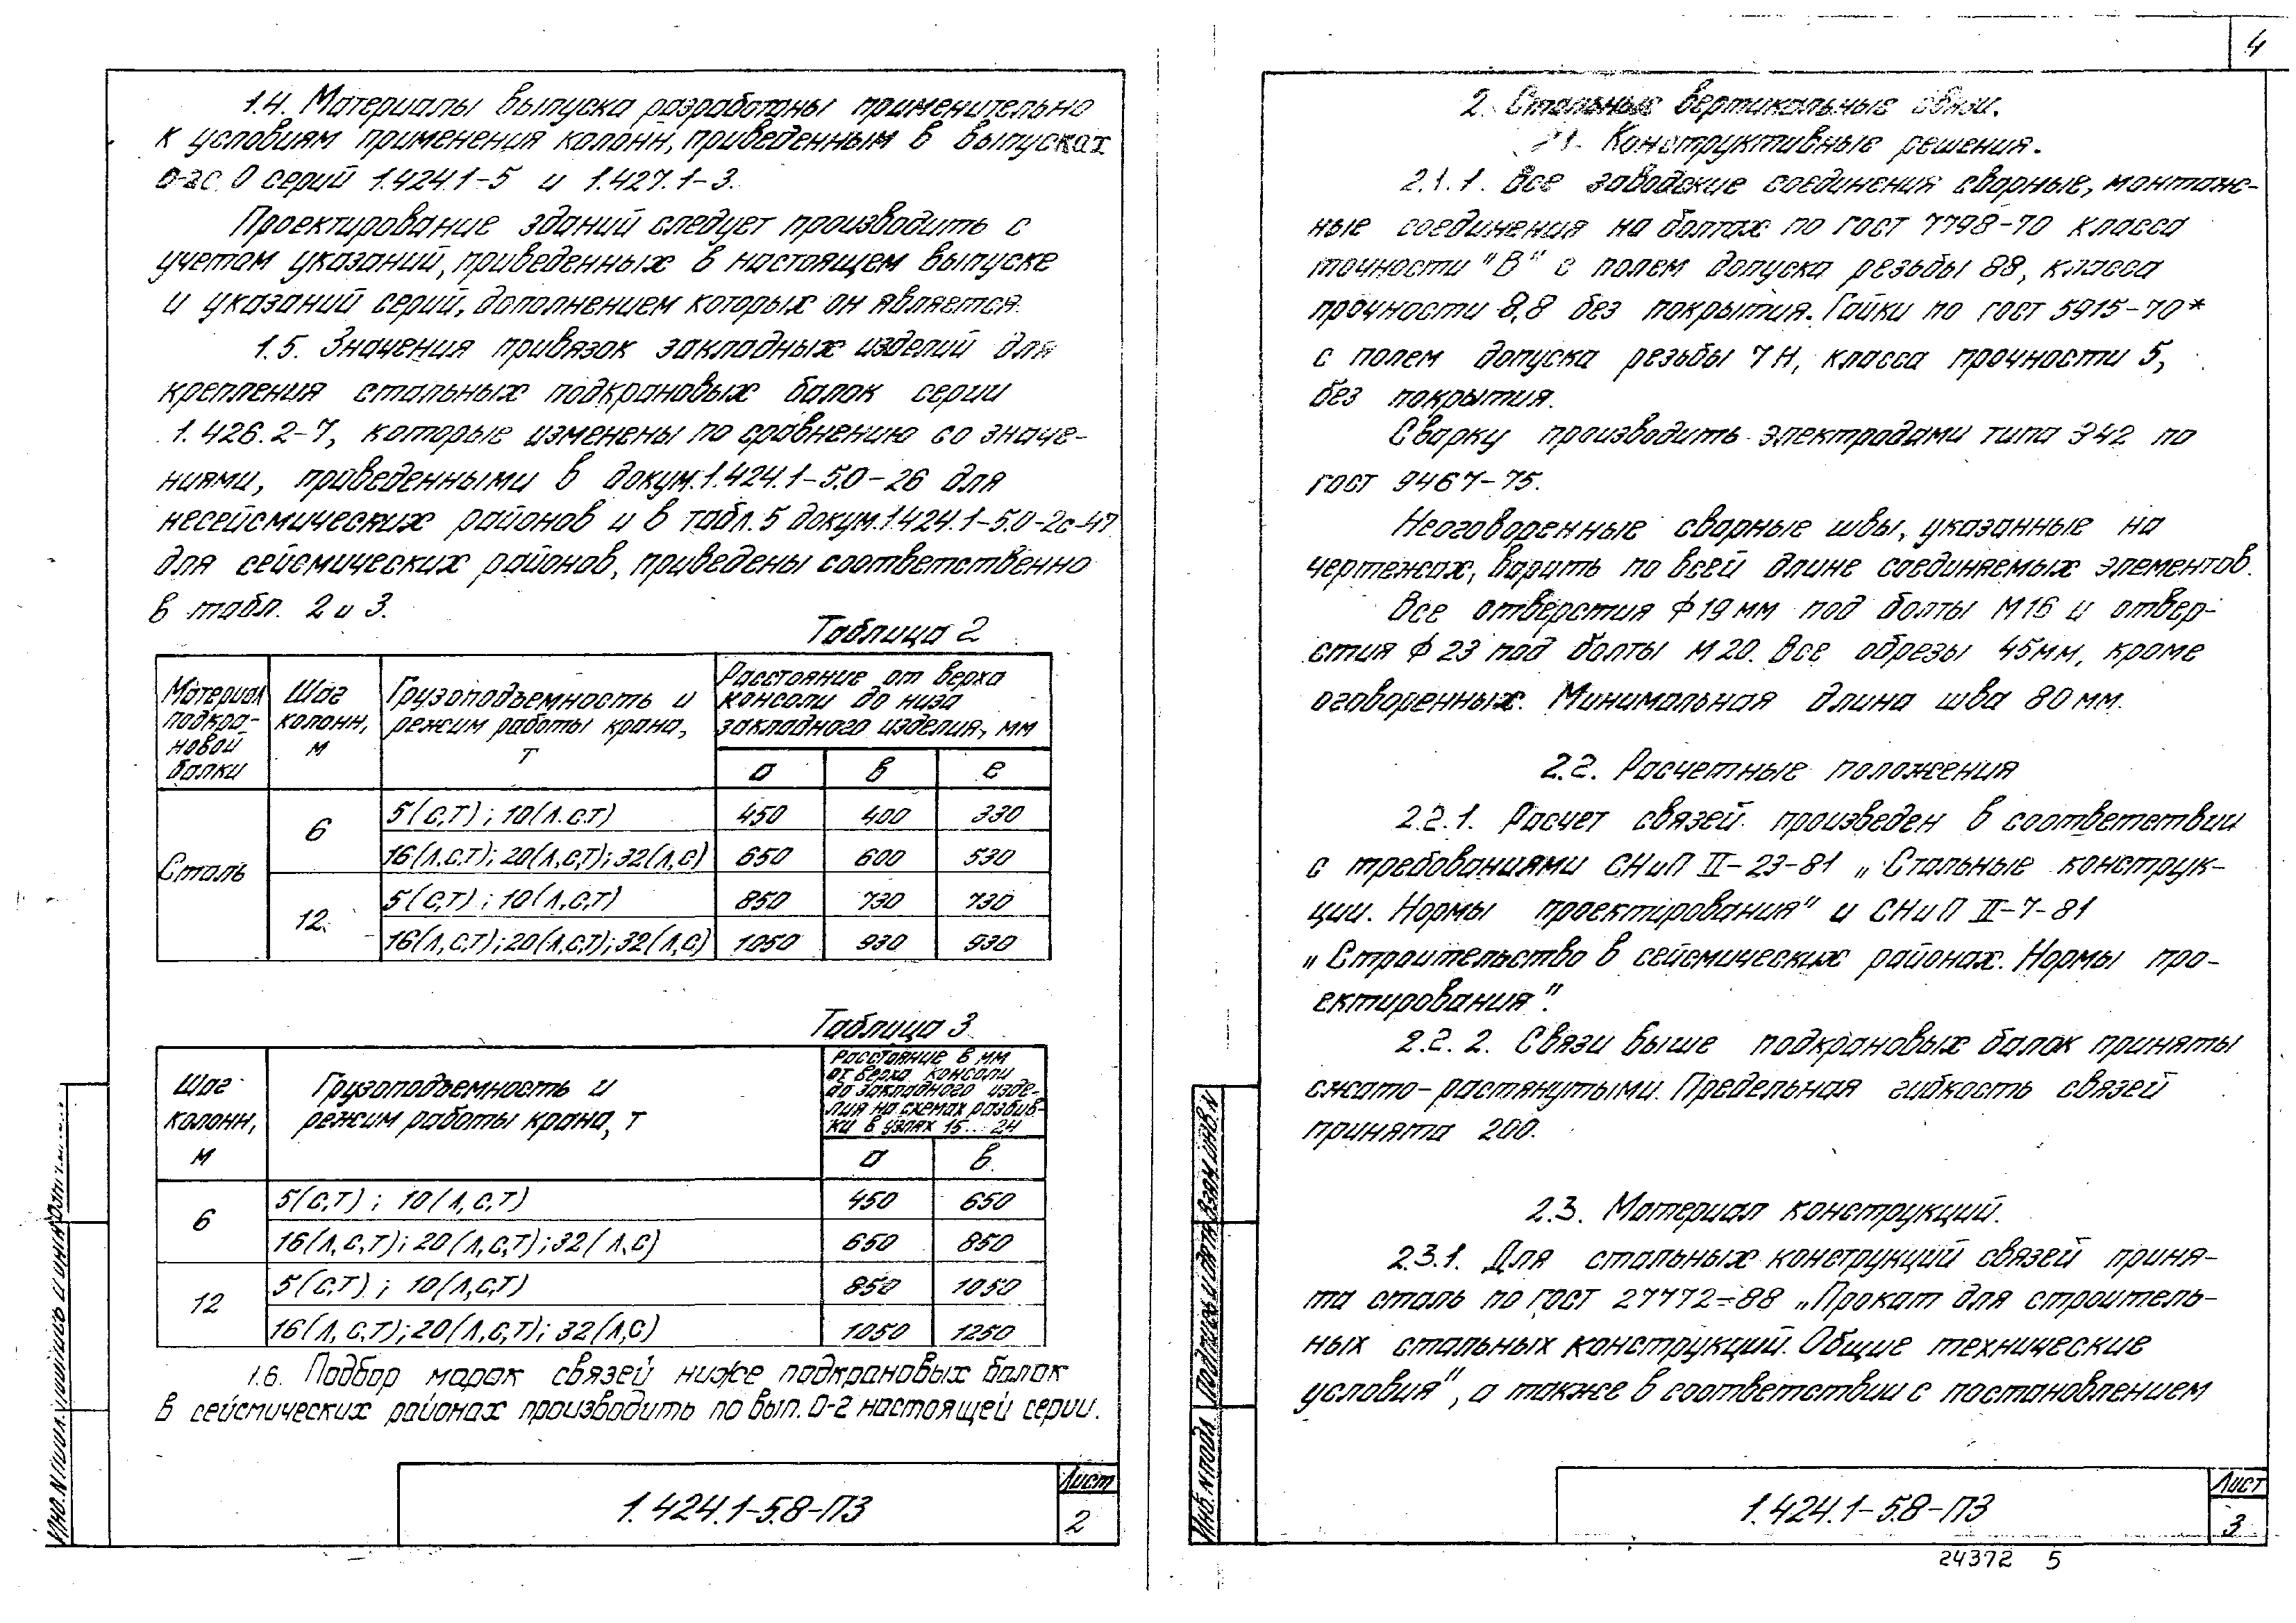 1.4. Материалы выпуска разработаны применительно
к условиям применения колонн, приведенным в выпусках
0 серий 1.424.1-5 и 1.427.1-3.
Проектирование зданий следует производить с
учетом указаний, приведенных в настоящем выпуске
и указаний серий, дополнением которых он является.
1.5. Значения привязок закладных изделий для
крепления стальных подкрановых балок серии
1.426.2-7, которые изменены по сравнению со значе-
ниями, приведенными в докум. 1.424.1-5.0-26 для
несейсмических районов и в табл. 5 докум. 1.424.1-5.0-2с-47
для сейсмических районов, приведены соответственно
в табл. 2 и 3.
Таблица 2
Материал подкра-новой балки | Шаг колонн, м | Грузоподъемность и режим работы крана, т | Расстояние от верха консоли до низа закладного изделия, мм
а | в | е
Сталь | 6 | 5(С,Т); 10(Л.С.Т) | 450 | 400 | 330
16(Л.С.Т); 20(Л,С,Т); 32(Л,С) | 650 | 600 | 530
12 | 5(С,Т); 10(Л,С,Т) | 850 | 730 | 730
16(Л,С,Т); 20(Л,С,Т); 32(Л,С) | 1050 | 930 | 930
Таблица 3
Шаг колонн, м | Грузоподъемность и режим работы крана, т | Расстояние в мм от верха консоли до закладного изде-лия на схемах разбив-ки в узлах 15...24
а | в
6 | 5(С,Т); 10(Л,С,Т) | 450 | 650
16(Л,С,Т); 20(Л,С,Т); 32(Л,С) | 650 | 850
12 | 5(С,Т); 10(Л,С,Т) | 850 | 1050
16(Л,С,Т); 20(Л,С,Т); 32(Л,С) | 1050 | 1250
1.6. Подбор марок связей ниже подкрановых балок
в сейсмических районах производить по вып. 0-2 настоящей серии.
1.424.1-5.8-ПЗ
Лист
2
4
2. Стальные вертикальные связи.
Конструктивные решения.
2.1.1. Все заводские соединения сварные, монтаж-
ные соединения на болтах по ГОСТ 7798-70 класса
точности "В" с полем допуска резьбы 88, класса
прочности 8,8 без покрытия. Гайки по ГОСТ 5915-70*
с полем допуска резьбы 7Н, класса прочности 5,
без покрытия.
Сварку производить электродами типа Э42 по
ГОСТ 9467-75.
Неоговоренные сварные швы, указанные на
чертежах, варить по всей длине соединяемых элементов.
Все отверстия ф 19 мм под болты М16 и отвер-
стия ф 23 под болты М20. Все обрезы 45мм, кроме
оговоренных. Минимальная длина шва 80 мм.
2.2. Расчетные положения
2.2.1. Расчет связей произведен в соответствии
с требованиями СНиП II-23-81 „Стальные конструк-
ции. Нормы проектирования" и СНиП II-7-81
„Строительство в сейсмических районах. Нормы про-
ектирования".
2.2.2. Связи выше подкрановых балок приняты
сжато-растянутыми. Предельная гибкость связей
принята 200.
2.3. Материал конструкций.
2.3.1. Для стальных конструкций связей приня-
та сталь по ГОСТ 27772-88 „Прокат для строитель-
ных стальных конструкций. Общие технические
условия", а также в соответствии с постановлением
Инв. № подл. Подпись и дата Взам. инв. №
1.424.1-5.8-ПЗ
Лист
3
24372 5